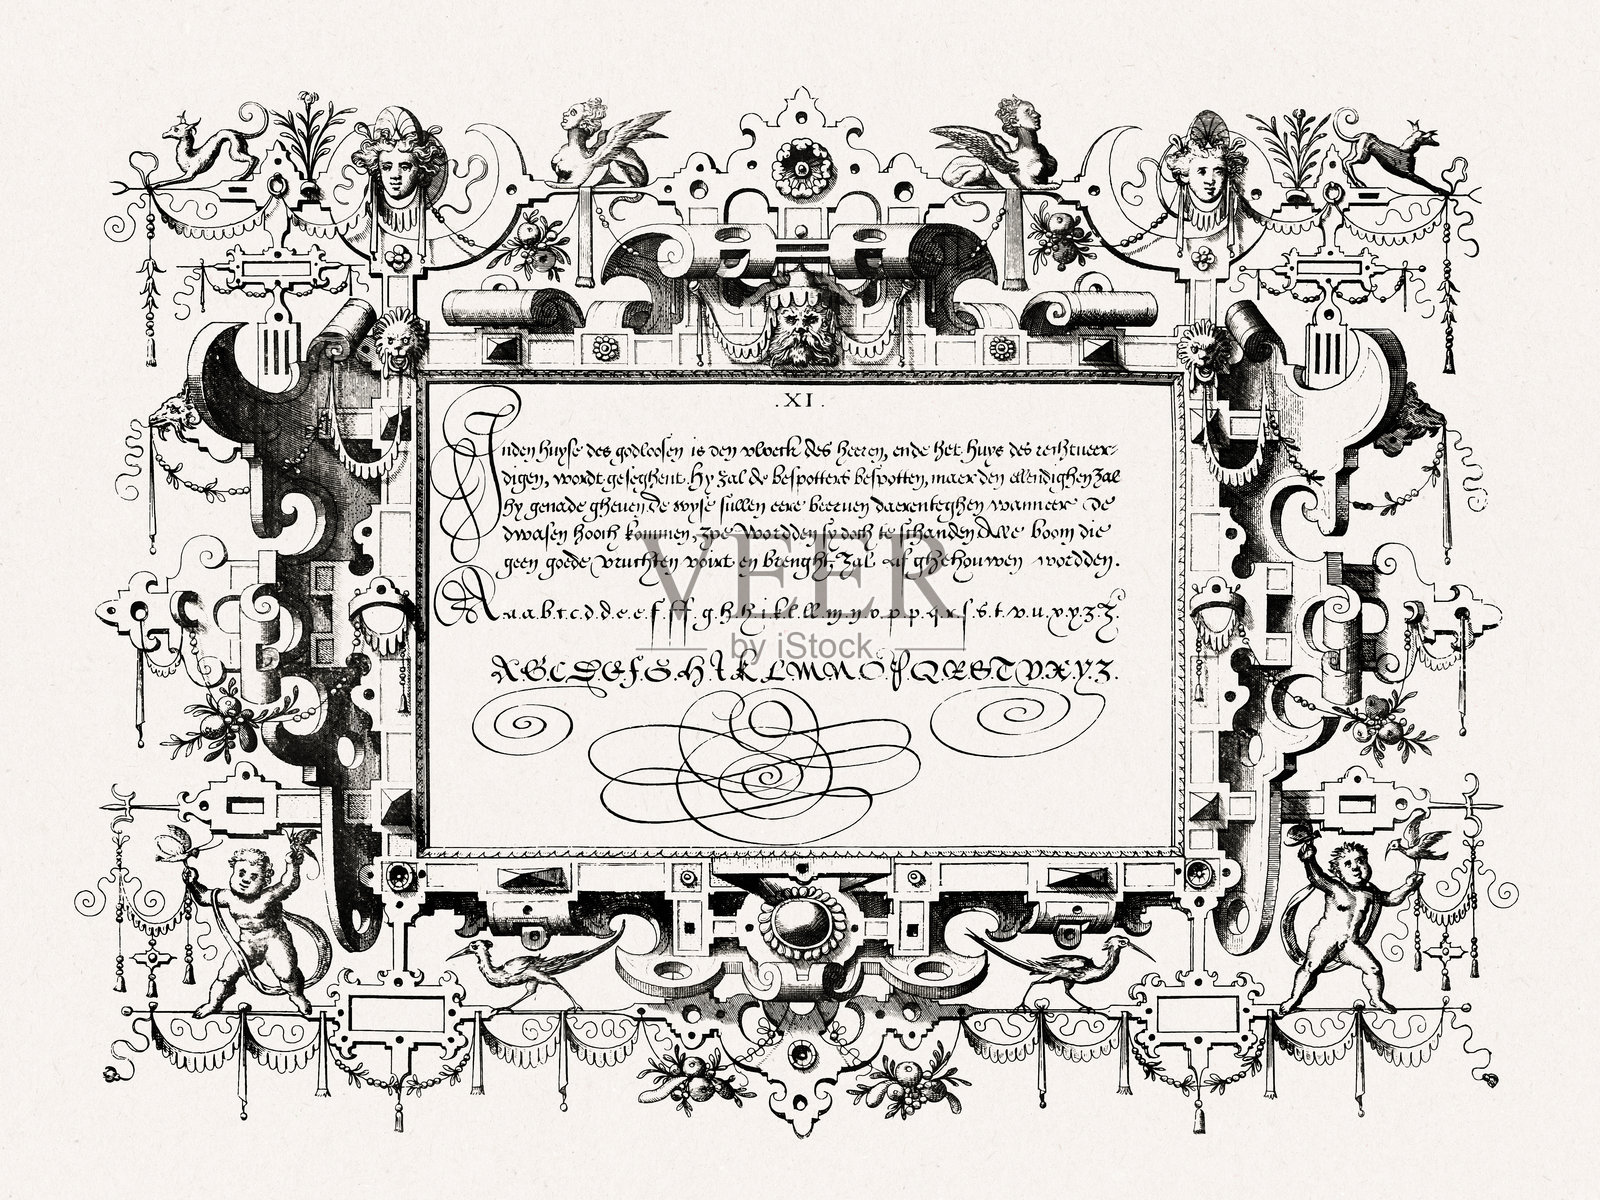 .XI.
Inden huyse des godloosen is den vloeck des heeren, ende het huys des rechtueer-
digen, wordt geseghent. hy zal de bespotters bespotten, maer den ellendighen zal
hy genade gheuen. de wyse sullen eere beeruen daerenteghen wanneer de
dwasen hooch kommen, zoe wordden sy doch te schanden Alle boom die
geen goede vruchten voirt en brenght, zal af ghehouwen wordden.
A.a.a.b.c.c.d.d.e.e.f.ff.g.h.h.i.k.l.ll.m.n.o.p.p.q.r.s.s.t.v.u.x.y.z.z.
A.B.C.D.E.F.G.H.I.K.L.M.N.O.P.Q.R.S.T.V.X.Y.Z.
VEER
by iStock